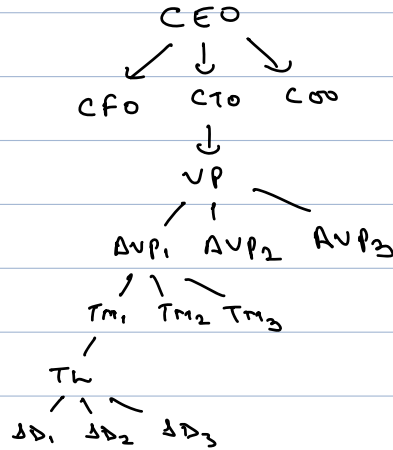 CEO
CFO CTO COO
VP
AVP₁ AVP₂ AVP₃
TM₁ TM₂ TM₃
TL
SD₁ SD₂ SD₃